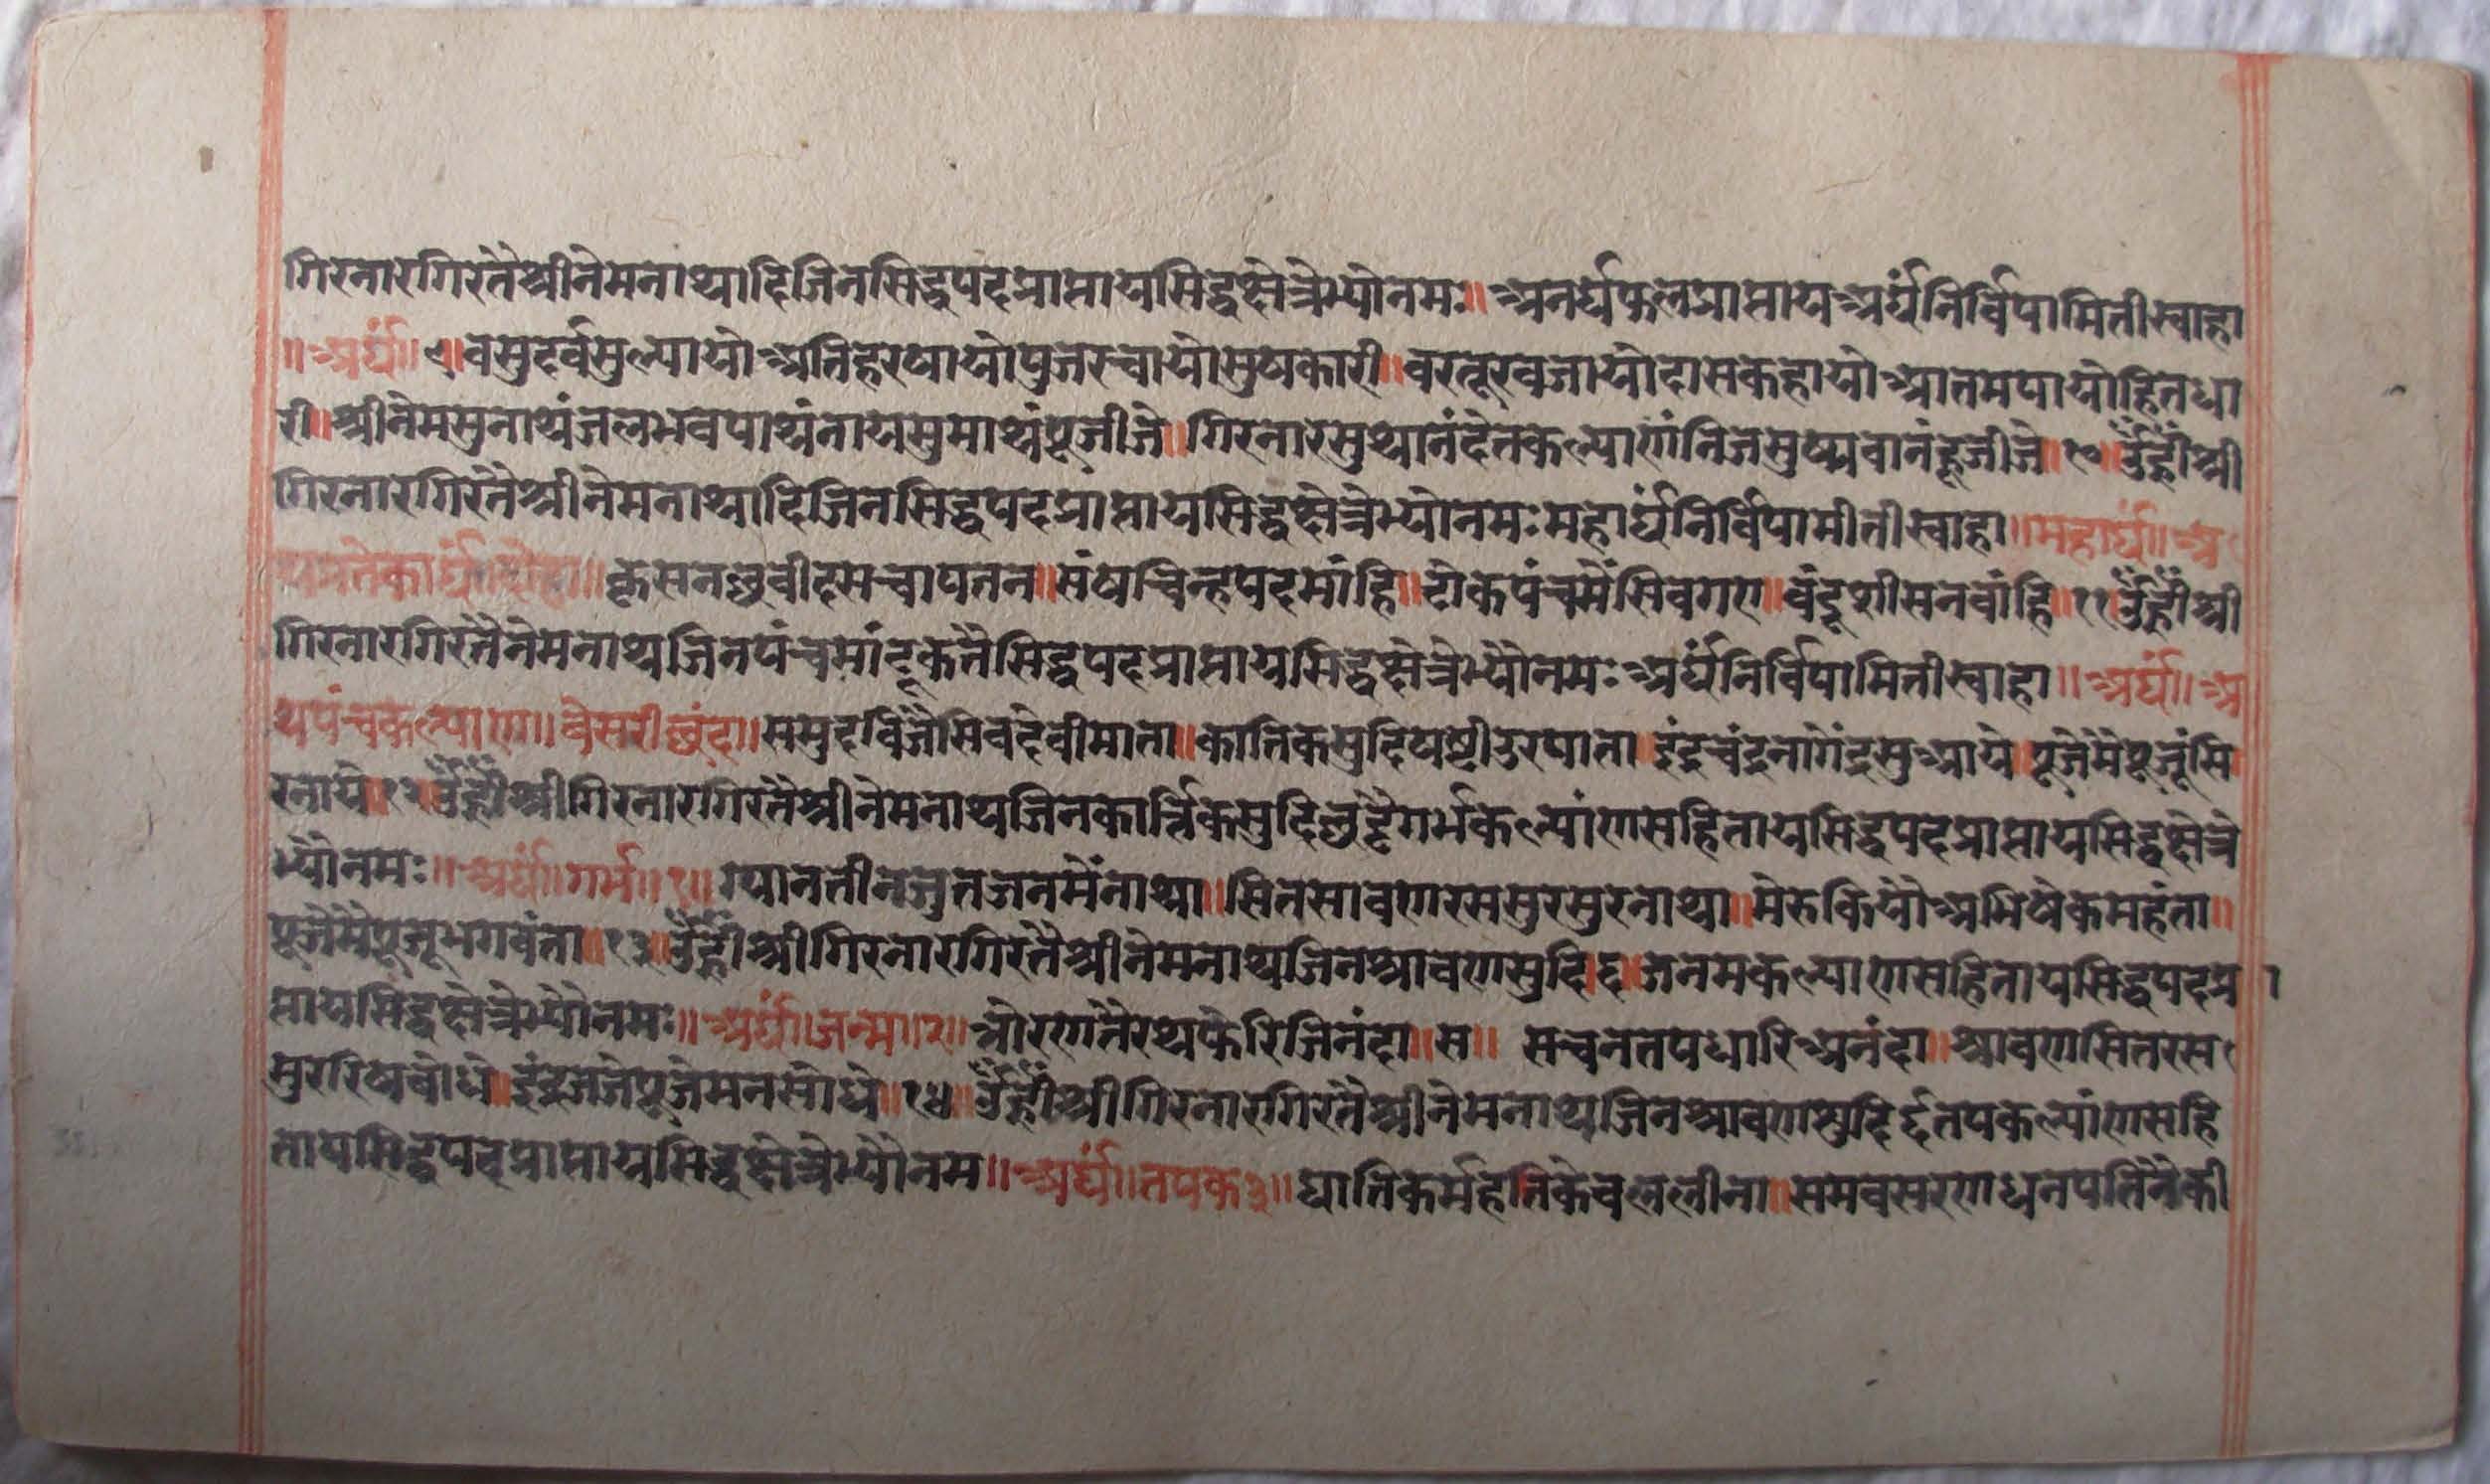 गिरनारगिरतैश्रीनेमनाथादिजिनसिद्धपदप्राप्तायसिद्धक्षेत्रेभ्योनमः॥ अनर्घफलप्राप्तायअर्घंनिर्विपामितीस्वाहा
॥अर्घं॥९॥वसुदर्वसुल्यायोअतिहरषायोपुजरचायोसुषकारी॥वरतूरवजायोदासकहायोआतमपायोहितधा
री॥श्रीनेमसुनाथंजलभवपाथंनायसुमाथंपूजीजे॥गिरनारसुथानंदैतकल्याणंनिजसुष्यवानंहूजीजे॥१०॥ॐह्रींश्री
गिरनारगिरतैश्रीनेमनाथादिजिनसिद्धपदप्राप्तायसिद्धक्षेत्रेभ्योनमःमहार्घंनिर्विपामीतीस्वाहा॥महार्घं॥अ
थप्रतेकार्घं॥दोहा॥क्रसनछवीदसचापतन॥संषचिन्हपदमांहि॥टोकपंचमैंसिवगए॥वंदूशीसनवांहि॥११॥ॐह्रींश्री
गिरनारगिरतैनेमनाथजिनपंचमांटूकतैसिद्धपदप्राप्तायसिद्धक्षेत्रेभ्यौनमःअर्घंनिर्विपामितीस्वाहा॥अर्घं॥अ
थपंचकल्याण॥बेसरीछंद॥समुदविजैसिवदेवीमाता॥कातिकसुदिषष्टीउरषाता॥इंद्रचंद्रनागेंद्रसुआये॥पूजेमैपूजूंसि
रनाये॥१२॥ॐह्रींश्रीगिरनारगिरतैश्रीनेमनाथजिनकार्तिकसुदिछट्टैगर्भकल्यांणसहितायसिद्धपदप्राप्तायसिद्धक्षेत्रे
भ्यौनमः॥अर्घं॥गर्भ॥१॥ग्यानतीनजुतजनमेंनाथा॥सितसावणरससुरसुरनाथा॥मेरुकियौअभिषेकमहंता॥
पूजैमैपूजूभगवंता॥१३॥ॐह्रींश्रीगिरनारगिरतैश्रीनेमनाथजिनश्रावणसुदि६जनमकल्याणसहितायसिद्धपदप्रा
प्तायसिद्धक्षेत्रेभ्यौनमः॥अर्घं॥जन्म॥२॥तोरणतैरथफेरिजिनंदा॥स॥ सचनतपधारिअनंदा॥श्रावणसितरस
सुररिषबोधे॥इंद्रजजेपूजेमनसोधे॥१४॥ॐह्रींश्रीगिरनारगिरतैश्रीनेमनाथजिनश्रावणसुदि६तपकल्यांणसहि
तायसिद्धपदप्राप्तायसिद्धक्षेत्रेभ्यौनम॥अर्घं॥तपक३॥घातिकर्महतिकेवललीना॥समवसरणधनपतिनैकी